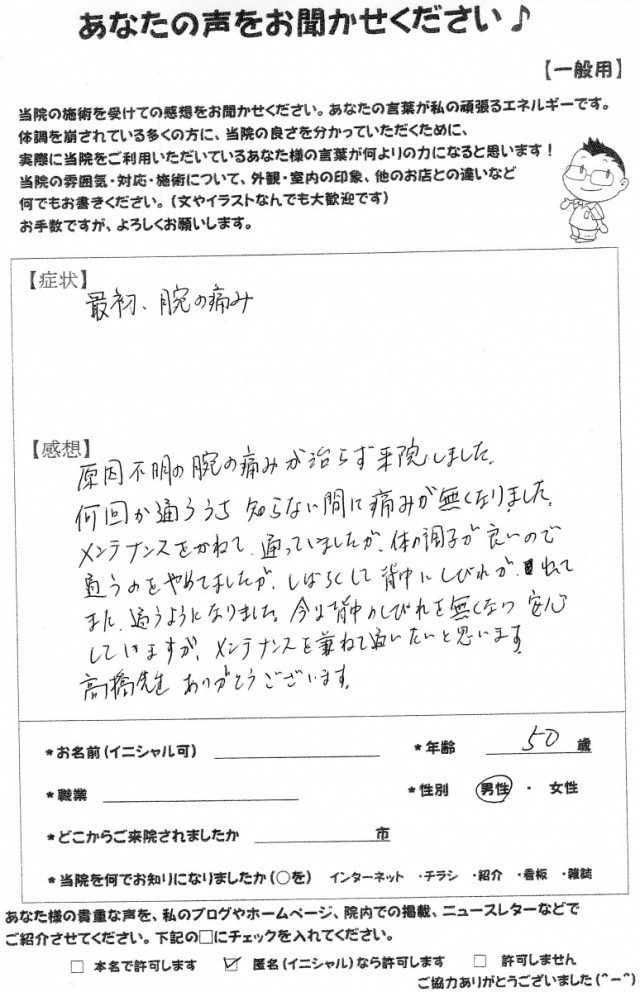 あなたの声をお聞かせください♪
【一般用】
当院の施術を受けての感想をお聞かせください。あなたの言葉が私の頑張るエネルギーです。
体調を崩されている多くの方に、当院の良さを分かっていただくために、
実際に当院をご利用いただいているあなた様の言葉が何よりの力になると思います！
当院の雰囲気・対応・施術について、外観・室内の印象、他のお店との違いなど
何でもお書きください。（文やイラストなんでも大歓迎です）
お手数ですが、よろしくお願いします。
【症状】
最初、腕の痛み
【感想】
原因不明の腕の痛みが治らず来院しました。
何回か通ううち知らない間に痛みが無くなりました。
メンテナンスをかねて、通っていましたが、体の調子が良いので
通うのをやめてましたが、しばらくして背中にしびれが、出て
また、通うようになりました。今は背中のしびれも無くなり安心
していますが、メンテナンスを兼ねて通いたいと思います。
高橋先生ありがとうございます。
*お名前（イニシャル可） *年齢 50 歳
*職業 *性別 男性 ・ 女性
*どこからご来院されましたか 市
*当院を何でお知りになりましたか（○を） インターネット ・チラシ ・紹介 ・看板 ・雑誌
あなた様の貴重な声を、私のブログやホームページ、院内での掲載、ニュースレターなどで
ご紹介させてください。下記の□にチェックを入れてください。
□ 本名で許可します ☑ 匿名（イニシャル）なら許可します □ 許可しません
ご協力ありがとうございました(^ー^)